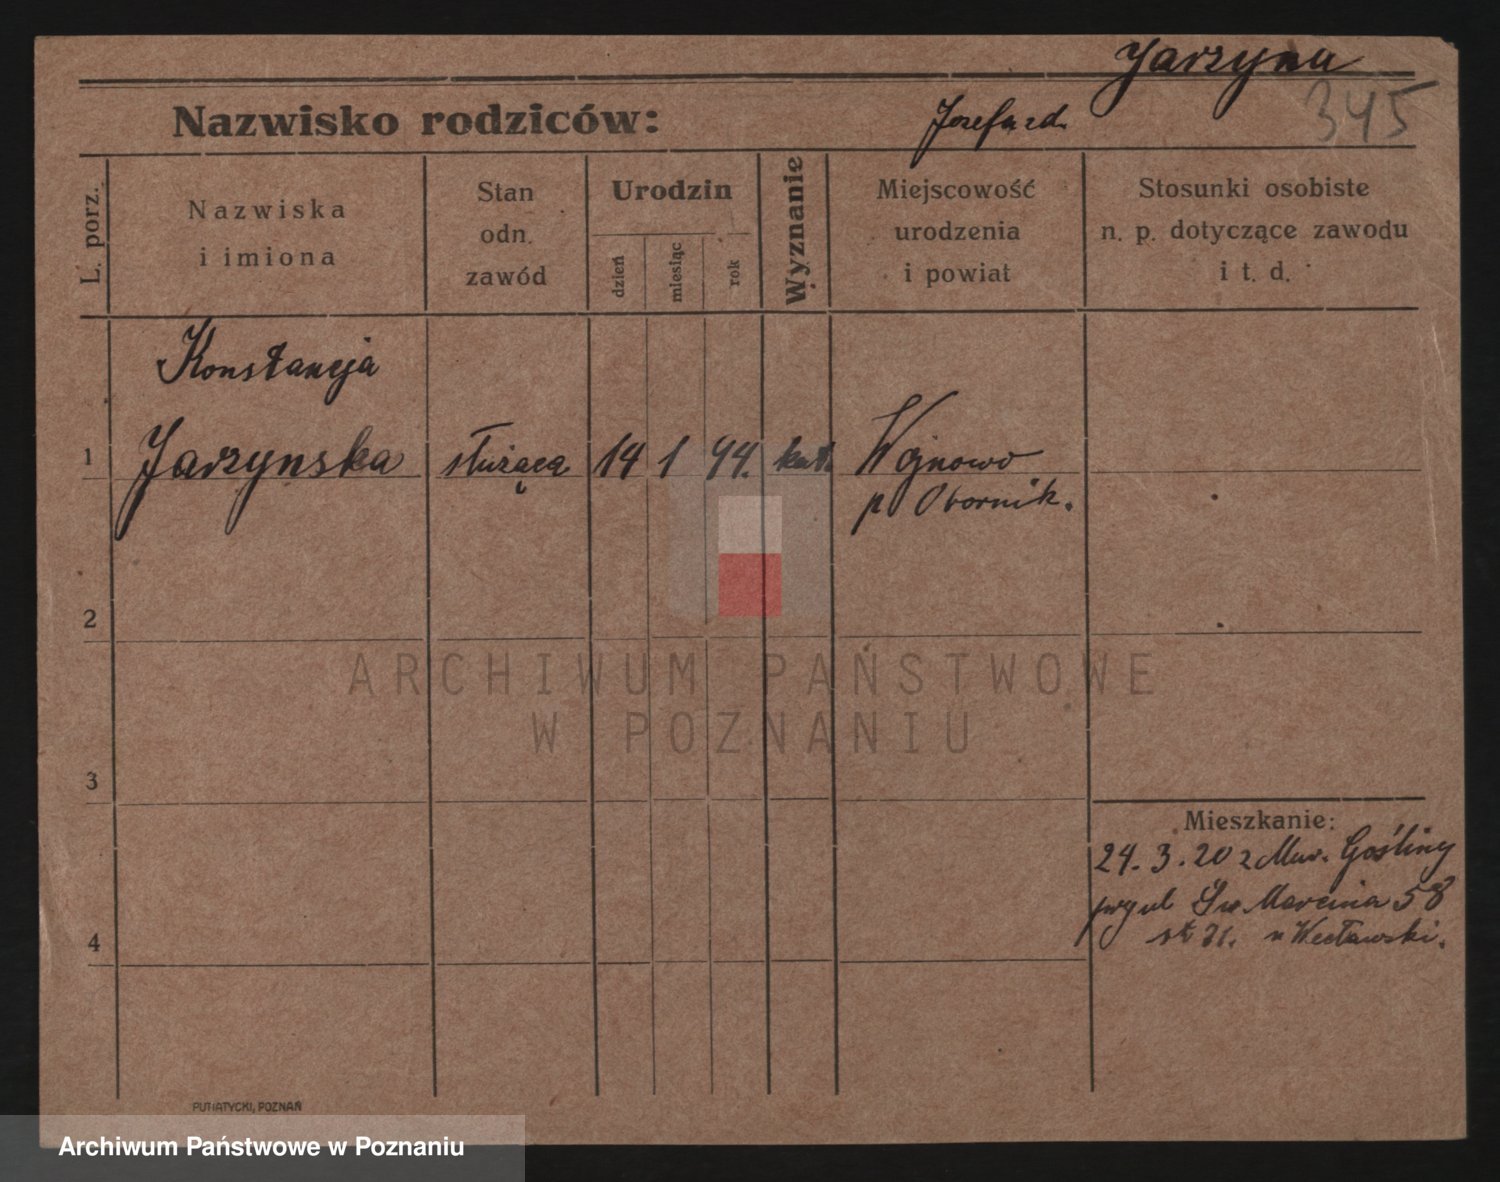 Jarzyna
345
Nazwisko rodziców:
Józefa zd.
L. porz.
Nazwiska
i imiona
Stan
odn.
zawód
Urodzin
dzień
miesiąc
rok
Wyznanie
Miejscowość
urodzenia
i powiat
Stosunki osobiste
n. p. dotyczące zawodu
i t. d.
Konstancja
1 Jarzynska służąca 14 1 94. kat. Wojnowo
p Obornik.
2
ARCHIWUM PAŃSTWOWE
W POZNANIU
3
Mieszkanie:
24. 3. 20 z Mur. Gośliny
przy ul Św. Marcina 58
4
u Węcławski.
PUTIATYCKI, POZNAŃ
Archiwum Państwowe w Poznaniu